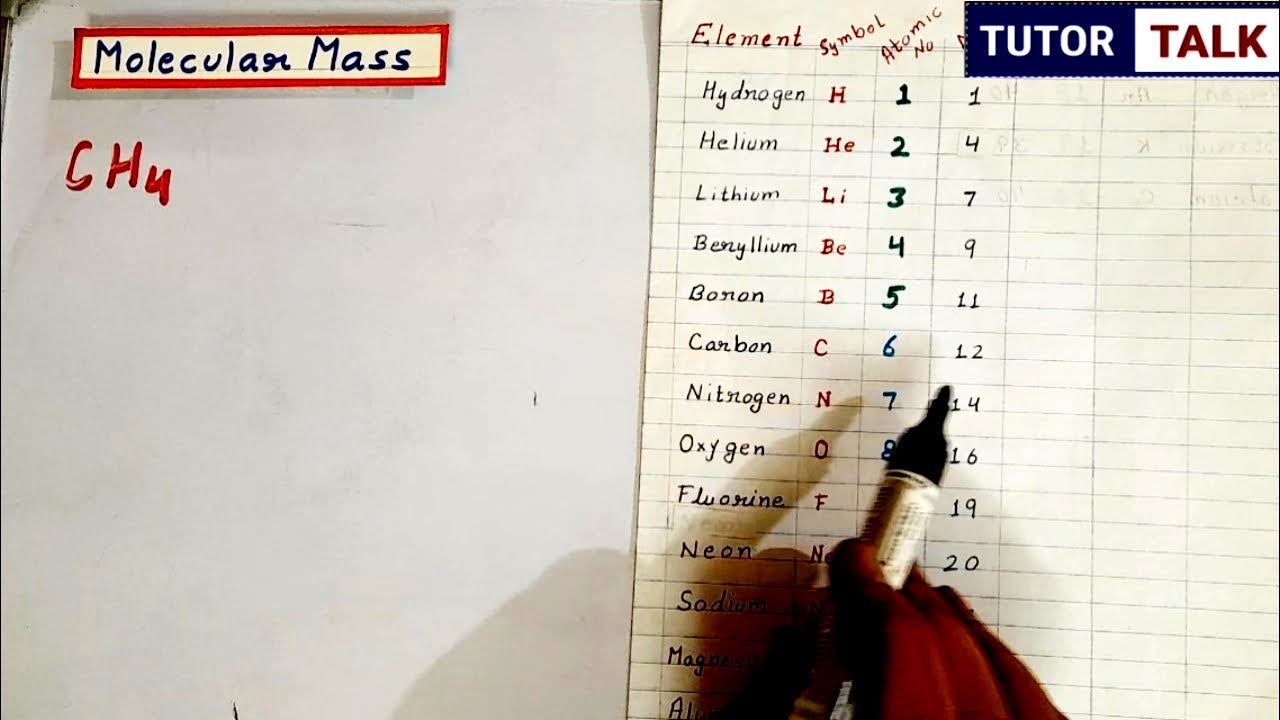 Molecular Mass
CH4
TUTOR TALK
Element Symbol Atomic No
Hydrogen H 1 1
Helium He 2 4
Lithium Li 3 7
Beryllium Be 4 9
Boron B 5 11
Carbon C 6 12
Nitrogen N 7 14
Oxygen O 8 16
Fluorine F 19
Neon Ne 20
Sodium